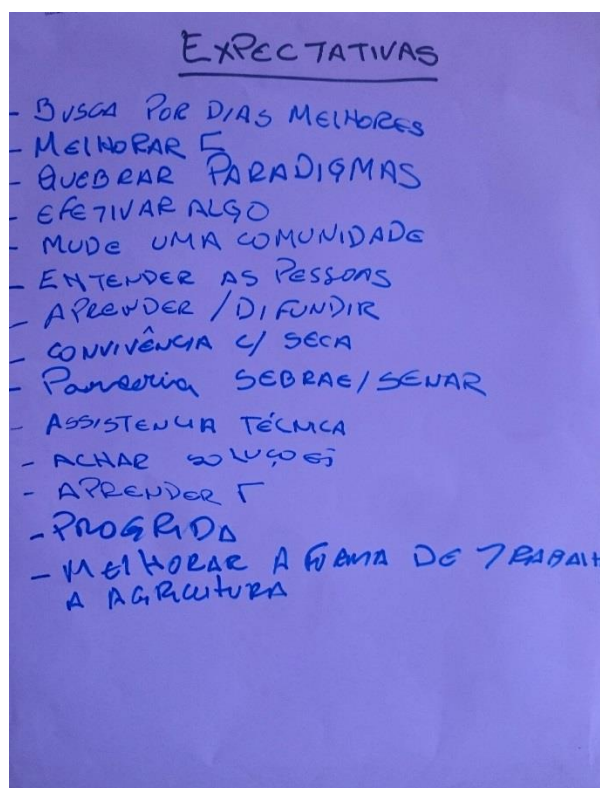 EXPECTATIVAS
- BUSCA POR DIAS MELHORES
- MELHORAR
- QUEBRAR PARADIGMAS
- EFETIVAR ALGO
- MUDE UMA COMUNIDADE
- ENTENDER AS PESSOAS
- APRENDER / DIFUNDIR
- CONVIVÊNCIA C/ SECA
- Parceria SEBRAE/SENAR
- ASSISTENCIA TÉCNICA
- ACHAR SOLUÇOES
- APRENDER
- PROGRIDA
- MELHORAR A FORMA DE TRABALH
A AGRICULTURA